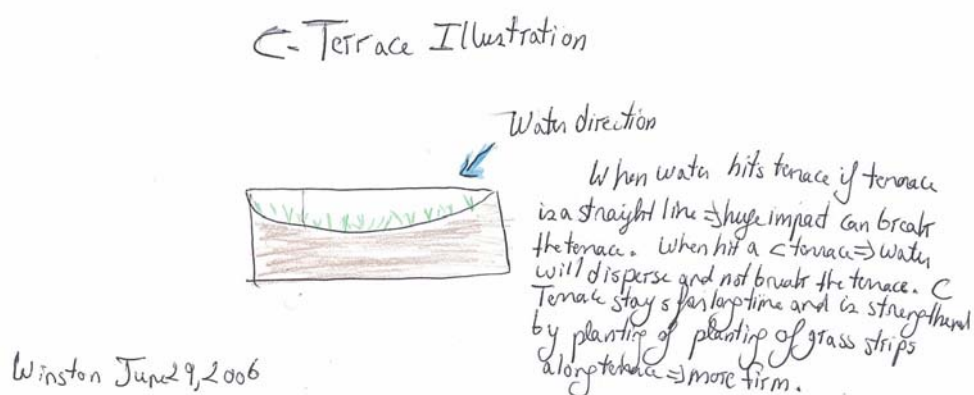 C-Terrace Illustration
Water direction
When water hits terrace if terrace
is a straight line ⇒ huge impact can break
the terrace. When hit a C terrace ⇒ water
will disperse and not break the terrace. C
Terrace stays for long time and is strengthened
by planting of planting of grass strips
along terrace ⇒ more firm.
Winston June 29, 2006